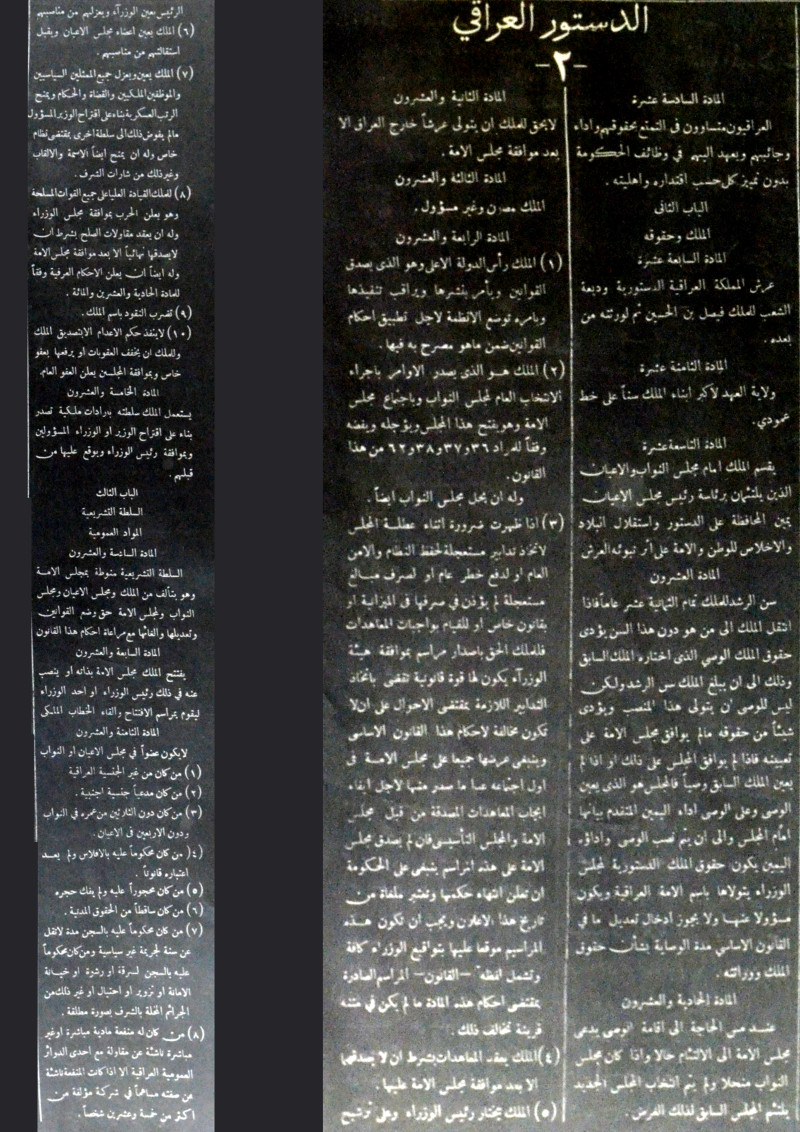 الدستور العراقي
-٢-
المادة السادسة عشرة
العراقيون متساوون في التمتع بحقوقهم واداء
وجائبهم ويعهد اليهم في وظائف الحكومة
بدون تمييز كل حسب اقتداره واهليته .
الباب الثاني
الملك وحقوقه
المادة السابعة عشرة
عرش المملكة العراقية الدستورية وديعة
الشعب للملك فيصل بن الحسين ثم لورثته من
بعده .
المادة الثامنة عشرة
ولاية العهد لاكبر ابناء الملك سناً على خط
عمودي .
المادة التاسعة عشرة
يقسم الملك امام مجلس النواب والاعيان
الذين يلتئمان برئاسة رئيس مجلس الاعيان
يمين المحافظة على الدستور واستقلال البلاد
والاخلاص للوطن والامة على أثر تبوئه العرش
المادة العشرون
سن الرشد للملك تمام الثمانية عشر عاماً فاذا
انتقل الملك الى من هو دون هذا السن يؤدى
حقوق الملك الوصي الذى اختاره الملك السابق
وذلك الى ان يبلغ الملك سن الرشد ولكن
ليس للوصى ان يتولى هذا المنصب ويؤدى
شيئاً من حقوقه مالم يوافق مجلس الامة على
تعيينه فاذا لم يوافق المجلس على ذلك او اذا لم
يعين الملك السابق وصياً فالمجلس هو الذى يعين
الوصى وعلى الوصى اداء اليمين المتقدم بيانها
امام المجلس والى ان يتم نصب الوصى واداؤه
اليمين يكون حقوق الملك الدستورية لمجلس
الوزراء يتولاها باسم الامة العراقية ويكون
مسؤولا عنها ولا يجوز ادخال تعديل ما في
القانون الاساسي مدة الوصاية بشأن حقوق
الملك ووراثته .
المادة الحادية والعشرون
عند مس الحاجة الى اقامة الوصى يدعى
مجلس الامة الى الالتئام حالا واذا كان مجلس
النواب منحلا ولم يتم انتخاب المجلس الجديد
يلتئم المجلس السابق لذلك الغرض .
المادة الثانية والعشرون
لايحق للملك ان يتولى عرشاً خارج العراق الا
بعد موافقة مجلس الامة .
المادة الثالثة والعشرون
الملك مصون وغير مسؤول .
المادة الرابعة والعشرون
(١) الملك رأس الدولة الاعلى وهو الذى يصدق
القوانين ويأمر بنشرها ويراقب تنفيذها
وبامره توضع الانظمة لاجل تطبيق احكام
القوانين ضمن ماهو مصرح به فيها .
(٢) الملك هو الذى يصدر الاوامر باجراء
الانتخاب العام لمجلس النواب وباجتماع مجلس
الامة وهو يفتح هذا المجلس ويؤجله ويفضه
وفقاً للمواد ٣٦ و٣٧ و٣٨ و٦٢ من هذا
القانون .
وله ان يحل مجلس النواب ايضاً .
(٣) اذا ظهرت ضرورة اثناء عطلة المجلس
لاتخاذ تدابير مستعجلة لحفظ النظام والامن
العام او لدفع خطر عام او لصرف مبالغ
مستعجلة لم يؤذن في صرفها فى الميزانية او
بقانون خاص او للقيام بواجبات المعاهدات
فللملك الحق باصدار مراسم بموافقة هيئة
الوزرآء يكون لها قوة قانونية تقضى باتخاذ
التدابير اللازمة بمقتضى الاحوال على ان لا
تكون مخالفة لاحكام هذا القانون الاساسى
وينبغى عرضها جميعا على مجلس الامة فى
اول اجتماعه عدا ما صدر منها لاجل ايفاء
ايجاب المعاهدات المصدقة من قبل مجلس
الامة والمجلس التأسيسى فان لم يصدق مجلس
الامة على هذه المراسيم ينبغى على الحكومة
ان تعلن انتهاء حكمها وتعتبر ملغاة من
تاريخ هذا الاعلان ويجب ان تكون هذه
المراسيم موقعا عليها بتواقيع الوزراء كافة
وتشمل لفظة «القانون» المراسم الصادرة
بمقتضى احكام هذه المادة ما لم يكن في متنه
قرينة تخالف ذلك .
(٤) الملك يعقد المعاهدات بشرط ان لا يصدقها
الا بعد موافقة مجلس الامة عليها .
(٥) الملك يختار رئيس الوزراء وعلى ترشيح
الرئيس يعين الوزرآء ويعزلهم من مناصبهم
(٦) الملك يعين اعضاء مجلس الاعيان ويقبل
استقالتهم من مناصبهم .
(٧) الملك يعين ويعزل جميع الممثلين السياسيين
والموظفين الملكيين والقضاة والحكام ويمنح
الرتب العسكرية بناء على اقتراح الوزير المسؤول
مالم يفوض ذلك الى سلطة اخرى بمقتضى نظام
خاص وله ان يمنح ايضاً الاوسمة والالقاب
وغير ذلك من شارات الشرف .
(٨) للملك القيادة العليا على جميع القوات المسلحة
وهو يعلن الحرب بموافقة مجلس الوزراء
وله ان يعقد مقاولات الصلح بشرط ان
لايصدقها نهائياً الا بعد موافقة مجلس الامة
وله ايضاً ان يعلن الاحكام العرفية وفقاً
للمادة الحادية والعشرين والمائة .
(٩) تضرب النقود باسم الملك .
(١٠) لاينفذ حكم الاعدام الا بتصديق الملك
وللملك ان يخفف العقوبات او يرفعها بعفو
خاص وبموافقة المجلسين يعلن العفو العام .
المادة الخامسة والعشرون
يستعمل الملك سلطته بارادات ملكية تصدر
بناء على اقتراح الوزير او الوزراء المسؤولين
وبموافقة رئيس الوزراء ويوقع عليها من
قبلهم .
الباب الثالث
السلطة التشريعية
المواد العمومية
المادة السادسة والعشرون
السلطة التشريعية منوطة بمجلس الامة
وهو يتألف من الملك ومجلس الاعيان ومجلس
النواب ولمجلس الامة حق وضع القوانين
وتعديلها والغائها مع مراعاة احكام هذا القانون
المادة السابعة والعشرون
يفتتح الملك مجلس الامة بذاته او ينصب
عنه في ذلك رئيس الوزراء او احد الوزراء
ليقوم بمراسم الافتتاح والقاء الخطاب الملكى
المادة الثامنة والعشرون
لايكون عضواً في مجلس الاعيان او النواب
(١) من كان من غير الجنسية العراقية
(٢) من كان مدعياً جنسية اجنبية .
(٣) من كان دون الثلاثين من عمره في النواب
ودون الاربعين فى الاعيان .
(٤) من كان محكوماً عليه بالافلاس ولم يعد
اعتباره قانوناً .
(٥) من كان محجوراً عليه ولم يفك حجره
(٦) من كان ساقطاً من الحقوق المدنية .
(٧) من كان محكوماً عليه بالسجن مدة لاتقل
عن سنة لجريمة غير سياسية ومن كان محكوماً
عليه بالسجن لسرقة او رشوة او خيانة
الامانة او تزوير او احتيال او غير ذلك من
الجرائم المخلة بالشرف بصورة مطلقة .
(٨) من كان له منفعة مادية مباشرة او غير
مباشرة ناشئة عن مقاولة مع احدى الدوائر
العمومية العراقية الا اذا كانت المنفعة ناشئة
عن صفته مساهماً في شركة مؤلفة من
اكثر من خمسة وعشرين شخصاً .